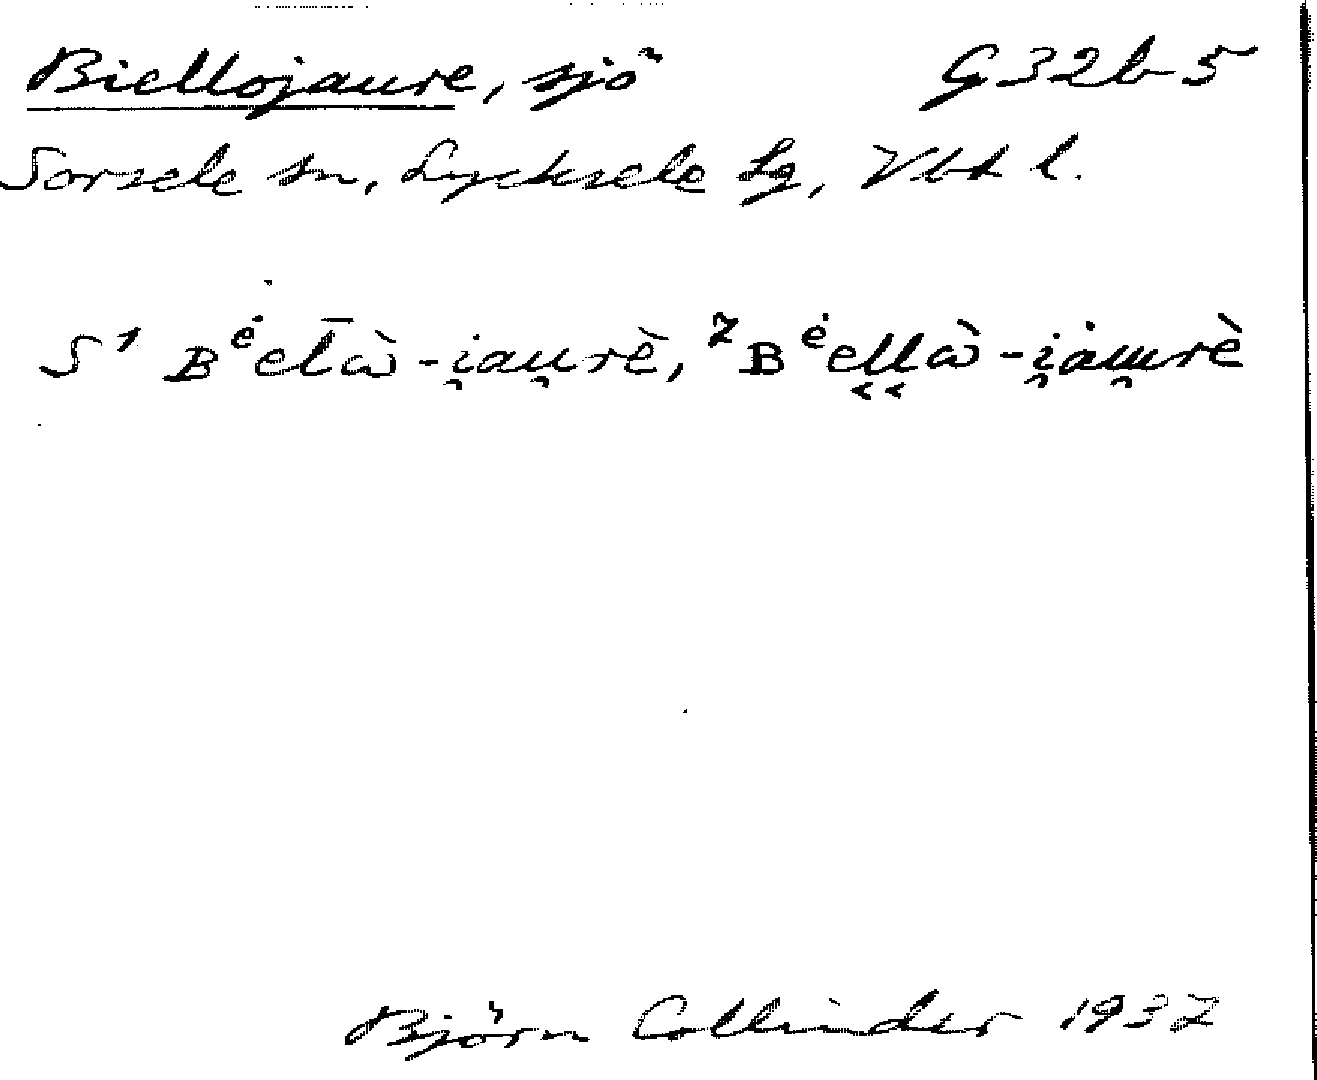 Biellojaure, sjö G32b-5
Sorsele sn, Lycksele Lg, Vbt l.
S ¹ ʙᵉ̇el̅ɷ̀-i̯au̯rè, ²ʙᵉ̇ellɷ̀-i̯ȧu̯rè
Björn Collinder 1937